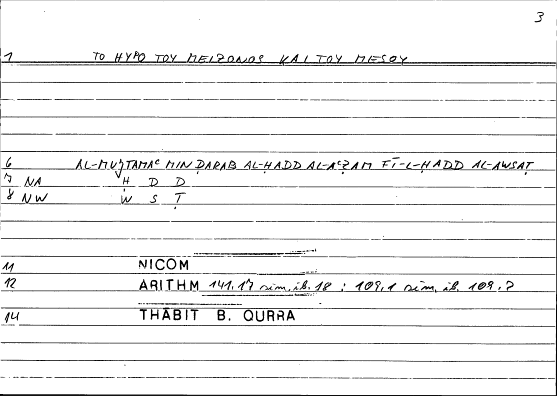 3
1 TO HYPO TOY MEIZONOS KAI TOY MESOY
6 AL-MUǦTAMAᶜ MIN ḌARAB AL-ḤADD AL-AᶜẒAM FĪ-L-ḤADD AL-AWSAṬ
7 NA Ḥ D D
8 NW W S Ṭ
11 NICOM
12 ARITHM 141,17 sim. ib. 18 ; 109,1 sim. ib. 109,2
14 THĀBIT B. QURRA